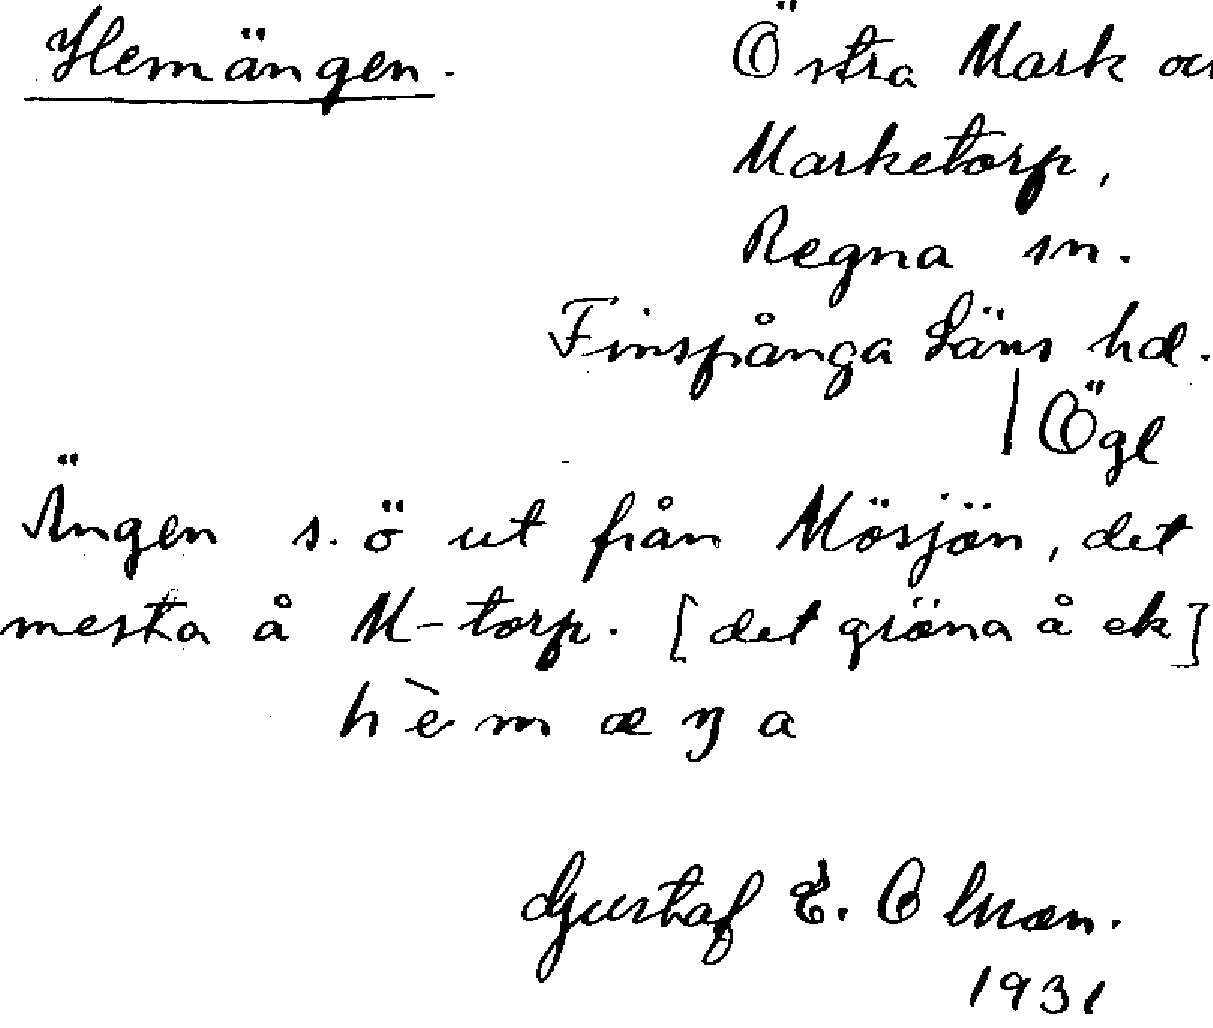 Hemängen.
Östra Mark oc
Marketorp,
Regna sn.
Finspånga Läns hd.
| Ögl
Ängen s.ö ut från Mösjön, det
mesta å M-torp. [det gröna å ek]
hèmæŋa
Gustaf E. Olson.
1931